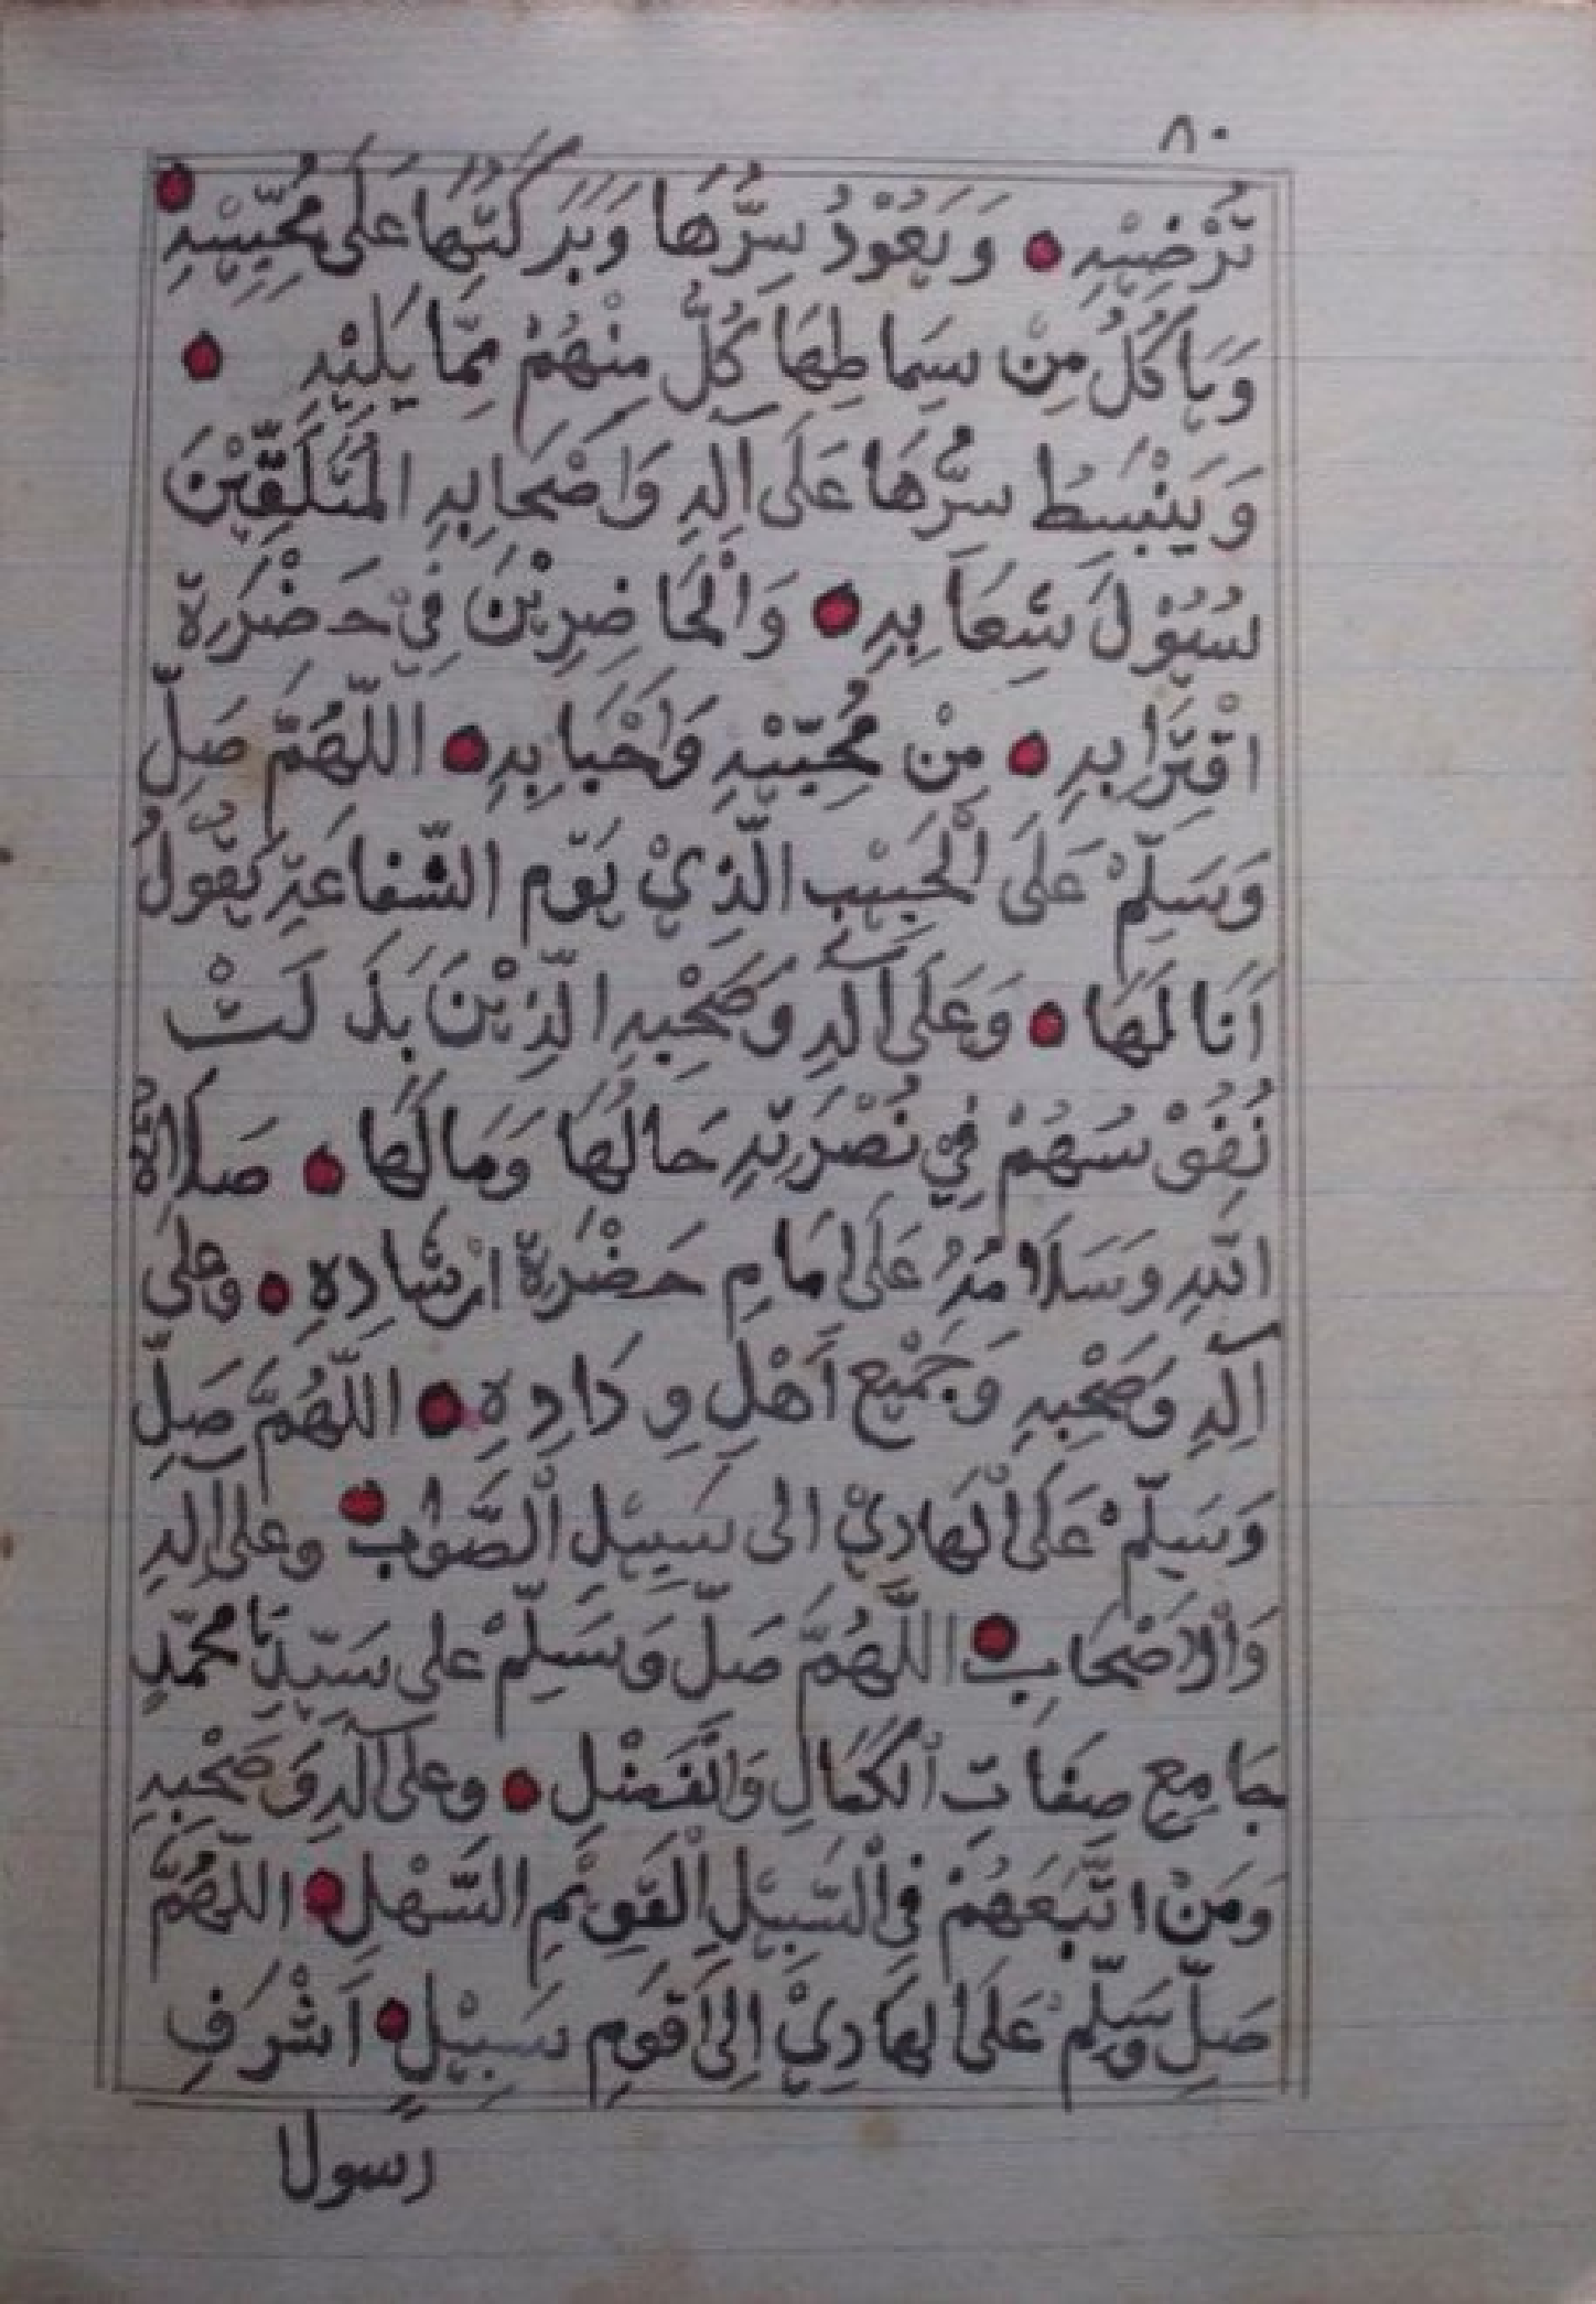 ٨٠
تُرْضِيْهِ ● وَيَعُوْدُ سِرُّهَا وَبَرَكَتُهَا عَلَى مُحِبِّيْهِ ●
وَيَاكُلُ مِنْ سِمَاطِهَا كُلٌّ مِنْهُمْ مِمَّا يَلِيْهِ ●
وَيَنْبَسِطُ سِرُّهَا عَلَى آلِهِ وَاَصْحَابِهِ الْمُتَلَقِّيْنَ
سُيُوْلَ شِعَابِهِ ● وَالْحَاضِرِيْنَ فِيْ حَضْرَةِ
اقْتِرَابِهِ ● مِنْ مُحِبِّيْهِ وَاَحْبَابِهِ ● اللّهُمَّ صَلِّ
وَسَلِّمْ عَلَى الْحَبِيْبِ الَّذِيْ يَوْمَ الشَّفَاعَةِ يَقُوْلُ
اَنَا لَهَا ● وَعَلَى آلِهِ وَصَحْبِهِ الَّذِيْنَ بَذَلَتْ
نُفُوْسُهُمْ فِيْ نُصْرَتِهِ حَالَهَا وَمَالَهَا ● صَلَاةُ
اللّهِ وَسَلَامُهُ عَلَى اِمَامِ حَضْرَةِ ارْشَادِهِ ● وعلى
آلِهِ وَصَحْبِهِ وَجَمِيْعِ اَهْلِ وِدَادِهِ ● اللّهُمَّ صَلِّ
وَسَلِّمْ عَلَى الْهَادِيْ الى سَبِيْلِ الصَّوَابِ ● وعلى آلِهِ
وَالْاَصْحَابِ ● اللّهُمَّ صَلِّ وَسَلِّمْ على سَيِّدِنَا محمّدٍ
جَامِعِ صِفَاتِ الْكَمَالِ وَالْفَضْلِ ● وعلى آلِهِ وَصَحْبِهِ
وَمَنْ اتَّبَعَهُمْ فِي السَّبِيْلِ الْقَوِيْمِ السَّهْلِ ● اللّهُمَّ
صَلِّ وَسَلِّمْ عَلَى الْهَادِيْ اِلَى اَقْوَمِ سَبِيْلٍ ● اَشْرَفِ
رسولا